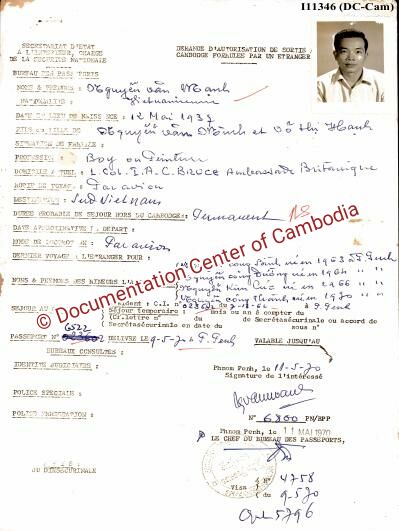 I11346 (DC-Cam)
SECRETARIAT D'ETAT
A L'INTERIEUR, CHARGE
DE LA SECURITE NATIONALE
DEMANDE D'AUTORISATION DE SORTIE
CAMBODGE FORMULEE PAR UN ETRANGER
BUREAU DES PASSEPORTS
NOMS & PRENOMS : Nguyễn văn Mạnh
NATIONALITE : Vietnamienne
DATE ET LIEU DE NAISSANCE : 12 Mai 1937
FILS ou FILLE DE Nguyễn văn et võ thị Hạnh
SITUATION DE FAMILLE :
PROFESSION : Boy ou Peinture
DOMICILE ACTUEL : L. Col. I.A.C. BRUCE Ambassade Britanique
MOTIF DE VOYAGE : Par avion
DESTINATION : Sud Vietnam
DUREE PROBABLE DE SEJOUR HORS DU CAMBODGE : Permanent
DATE APPROXIMATIVE DE DEPART :
MODE DE LOCOMOTION : Par avion
DERNIER VOYAGE A L'ETRANGER POUR :
công năm 1963 à P. Penh
Nguyễn công năm 1964 " "
NOMS & PRENOMS DES MINEURS Nguyễn Kim Cúc năm 1966 " "
Nguyễn công Thành năm 1970 " "
© Documentation Center of Cambodia
SEJOUR AU
Résident : C.I. à P. Penh
Séjour temporaire : mois ou an à compter du
Cf. lettre n° du Secrétasécurinale ou accord de
Secrétasécurinale en date du sous n°
6522
PASSEPORT N° DELIVRE LE 9-5-70 à P. Penh VALABLE JUSQU'AU
BUREAUX CONSULTES :
Phnom Penh, le 11-5-70
IDENTITE JUDICIAIRE :
Signature de l'intéressé
POLICE SPECIALE :
N° 6800 PN/BPP
POLICE IMMIGRATION :
Phnom Penh, le 11 MAI 1970
P. LE CHEF DU BUREAU DES PASSEPORTS,
DU DIRSECURINALE
Visa ( N° 4758
( du 9-5-70
5796